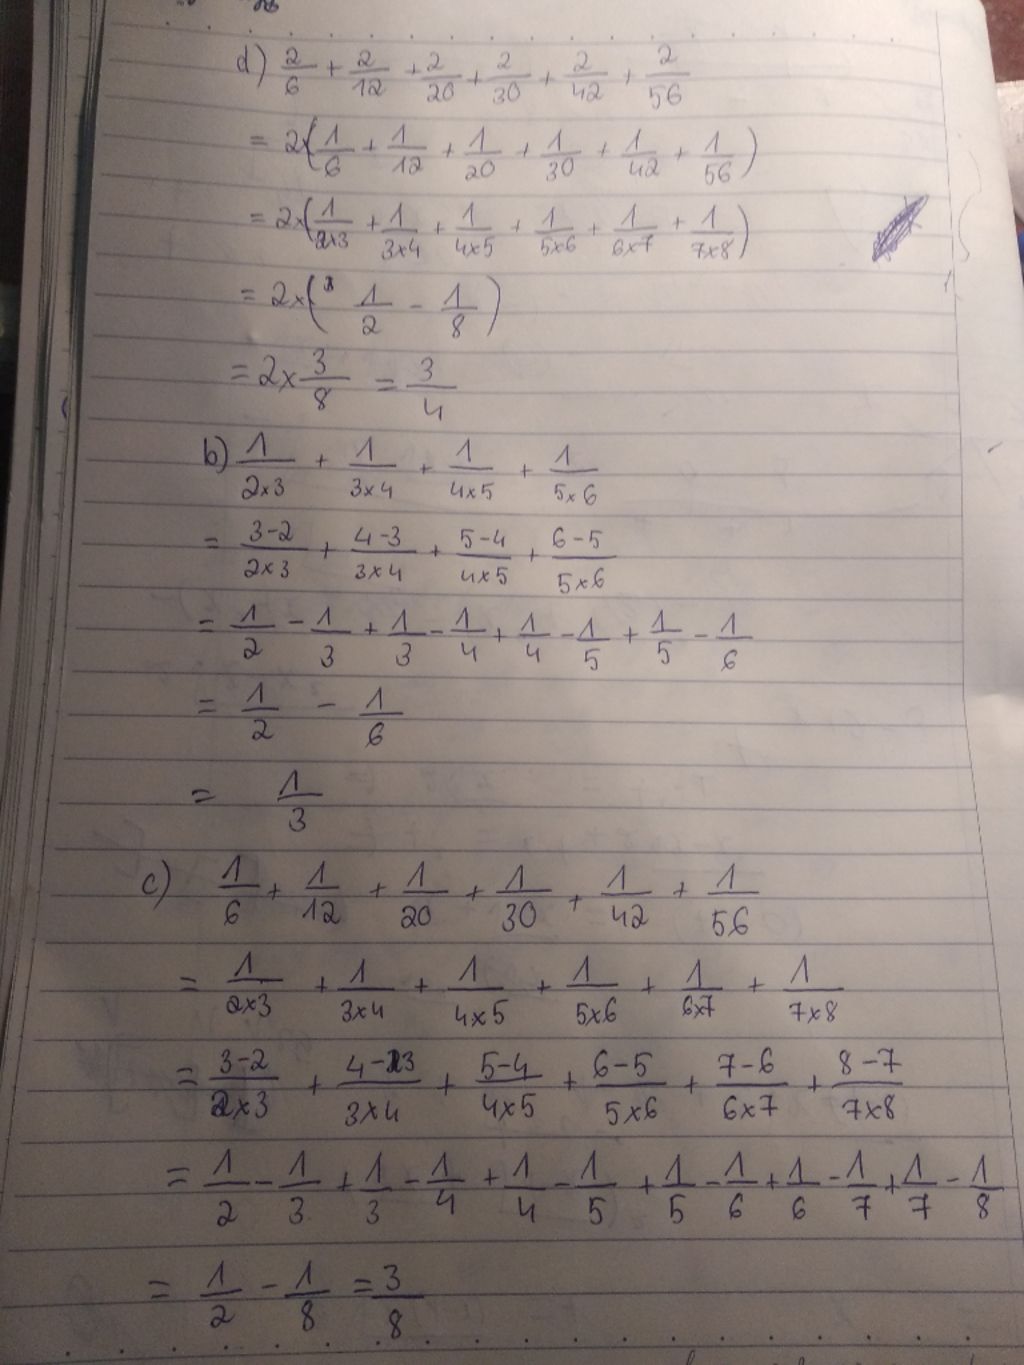 d) 2/6 + 2/12 + 2/20 + 2/30 + 2/42 + 2/56
= 2×(1/6 + 1/12 + 1/20 + 1/30 + 1/42 + 1/56)
= 2×(1/2×3 + 1/3×4 + 1/4×5 + 1/5×6 + 1/6×7 + 1/7×8)
= 2×(1/2 - 1/8)
= 2×3/8 = 3/4
b) 1/2×3 + 1/3×4 + 1/4×5 + 1/5×6
= 3-2/2×3 + 4-3/3×4 + 5-4/4×5 + 6-5/5×6
= 1/2 - 1/3 + 1/3 - 1/4 + 1/4 - 1/5 + 1/5 - 1/6
= 1/2 - 1/6
= 1/3
c) 1/6 + 1/12 + 1/20 + 1/30 + 1/42 + 1/56
= 1/2×3 + 1/3×4 + 1/4×5 + 1/5×6 + 1/6×7 + 1/7×8
= 3-2/2×3 + 4-3/3×4 + 5-4/4×5 + 6-5/5×6 + 7-6/6×7 + 8-7/7×8
= 1/2 - 1/3 + 1/3 - 1/4 + 1/4 - 1/5 + 1/5 - 1/6 + 1/6 - 1/7 + 1/7 - 1/8
= 1/2 - 1/8 = 3/8